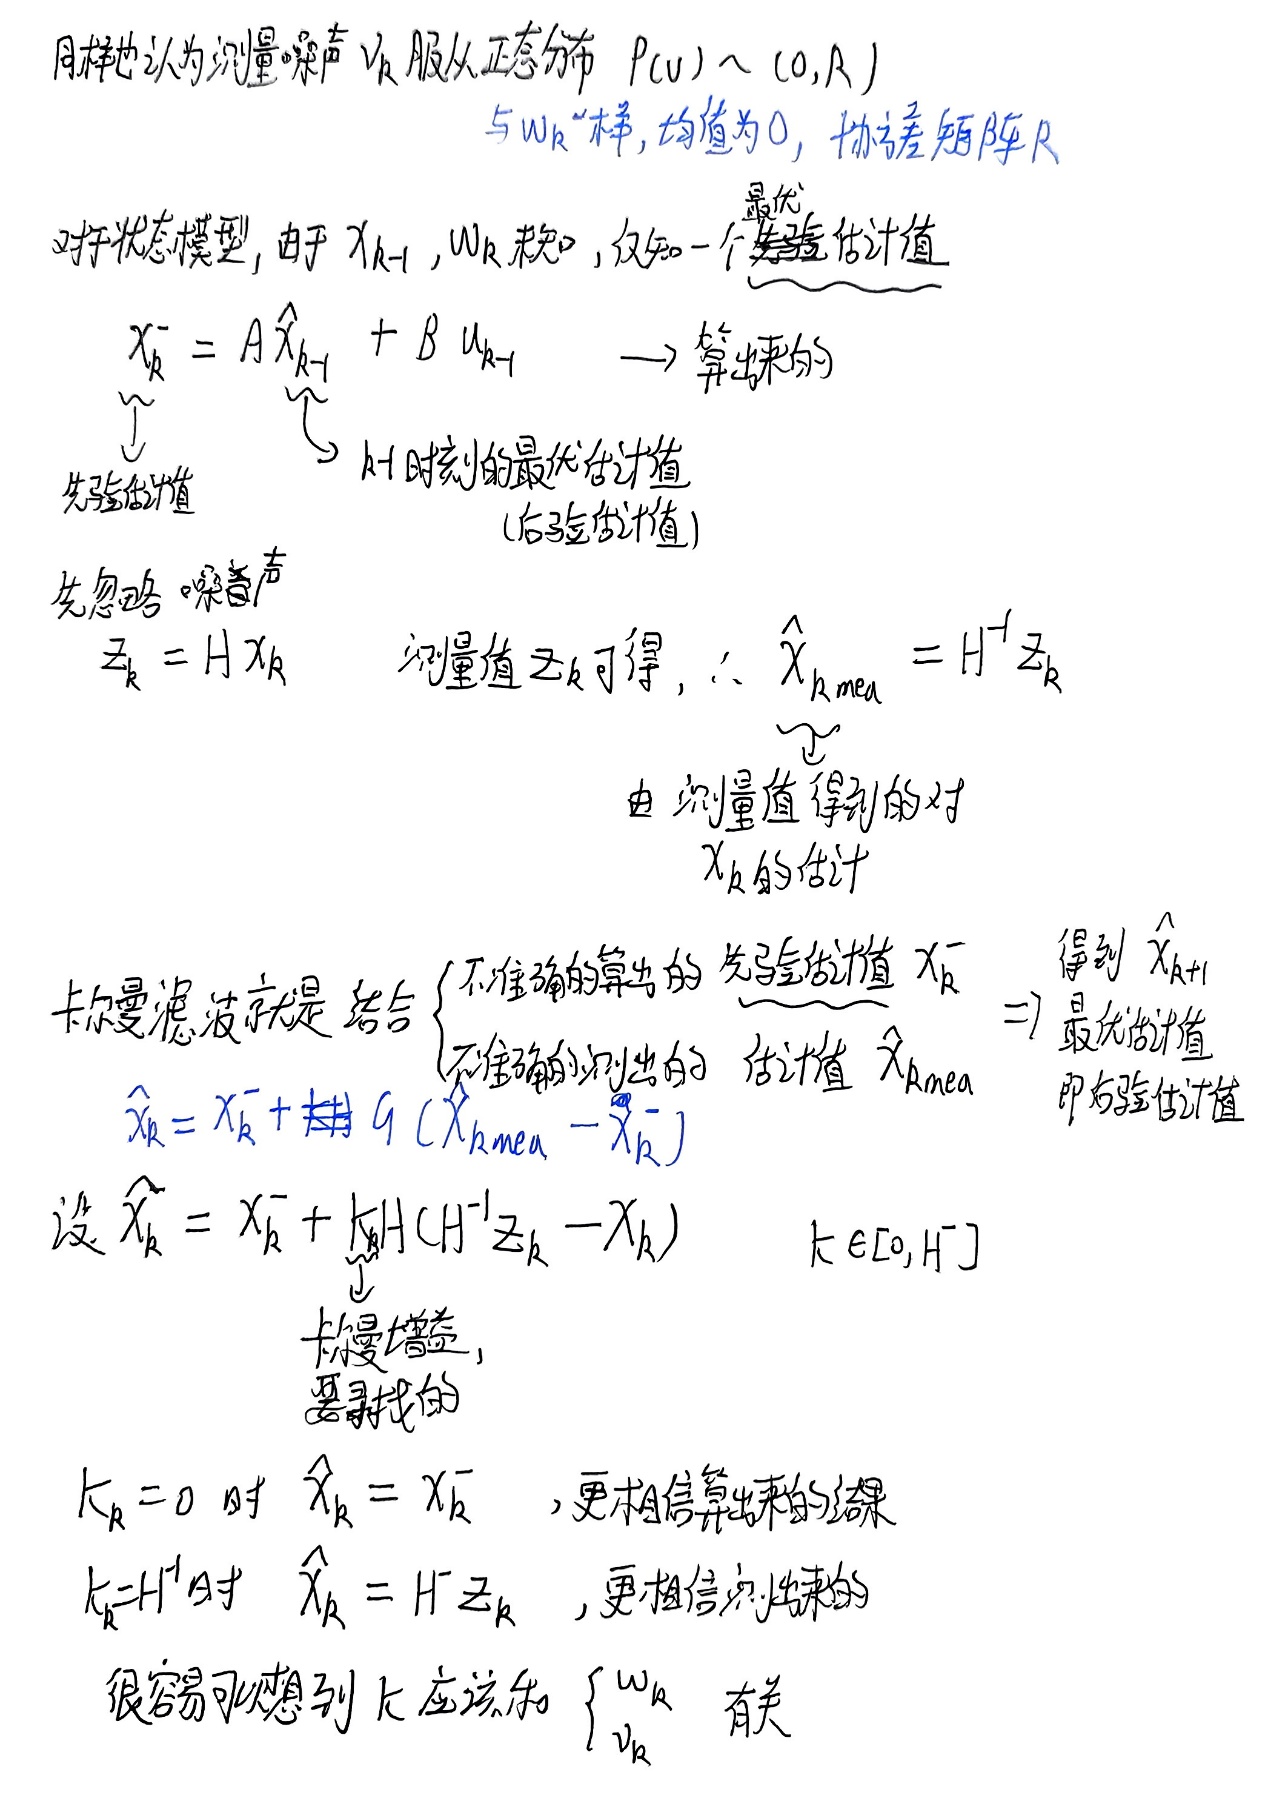 同样地认为测量噪声 νk 服从正态分布 P(v) ~ (0,R)
与wk一样,均值为0,协方差矩阵R
最优
对于状态模型,由于 xk-1 , wk 未知 ,仅知一个先验估计值
xk⁻ = A x̂k-1 + B uk-1 → 算出来的
k-1时刻的最优估计值
先验估计值
(后验估计值)
先忽略噪声
zk = H xk 测量值 zk 可得, ∴ x̂k mea = H⁻¹ zk
由 测量值得到的对
xk 的估计
卡尔曼滤波就是 结合 { 不准确的算出的 先验估计值 xk⁻ ⇒ 得到 x̂k+1
不准确的测出的 估计值 x̂k mea 最优估计值
即后验估计值
x̂k = xk⁻ + G ( x̂k mea − x̂k⁻ )
设 x̂k⁻ = xk⁻ + KkH ( H⁻¹ zk − xk ) k ∈ [0, H⁻]
卡尔曼增益,
要寻找的
Kk = 0 时 x̂k = xk⁻ ,更相信算出来的结果
Kk = H⁻¹时 x̂k = H⁻ zk ,更相信测出来的
很容易可以想到 K 应该和 { wk 有关
νk